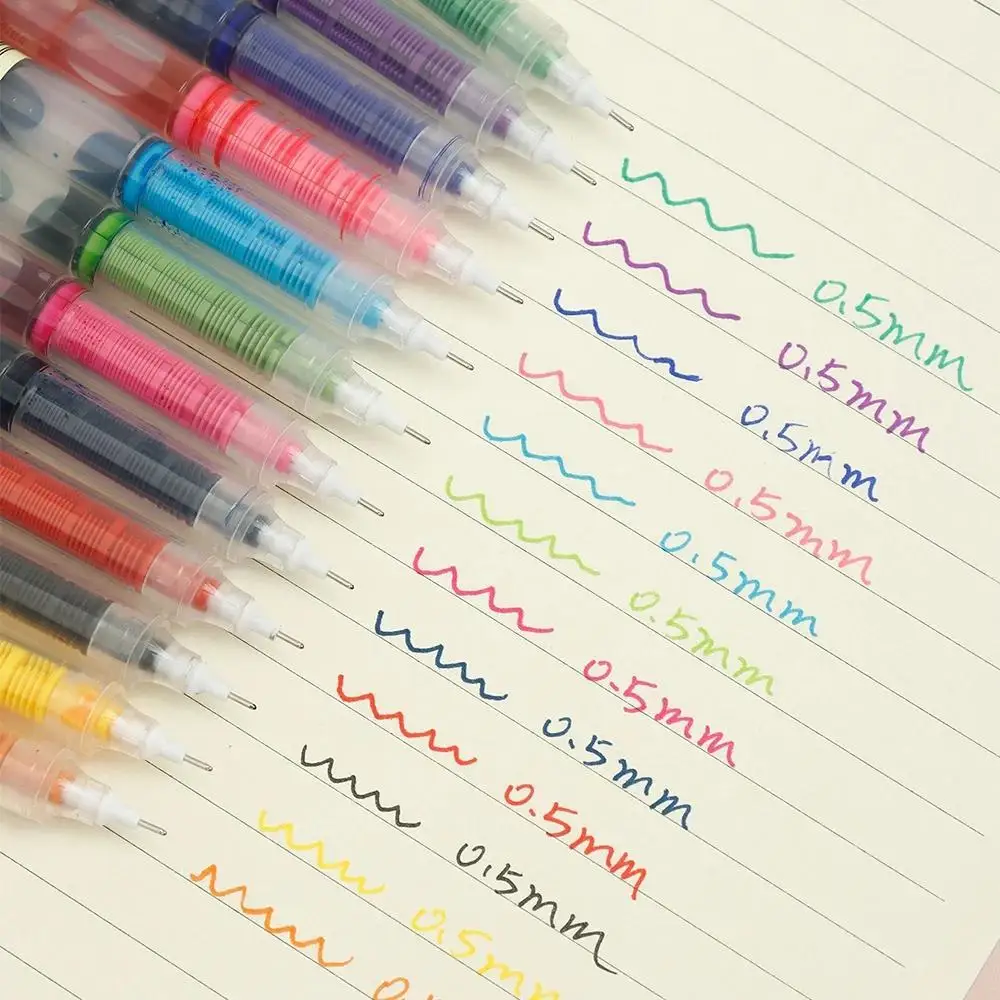 0.5mm
0.5mm
0.5mm
0.5mm
0.5mm
0.5mm
0.5mm
0.5mm
0.5mm
0.5mm
0.5mm
0.